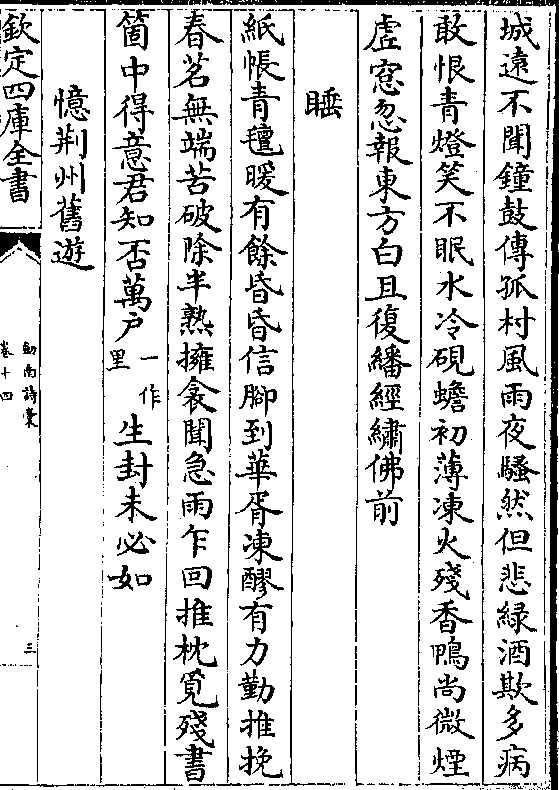 城逺不聞鐘鼓傳孤村風雨夜騷然但悲緑酒欺多病
敢恨青燈笑不眠水冷硯蟾初薄凍火殘香鴨尚微煙
虚窓忽報東方白且復繙經繡佛前
睡
紙帳青氊暖有餘昏昏信腳到華胥凍醪有力勤推挽
春茗無端苦破除半熟擁衾聞急雨乍回推枕覓殘書
箇中得意君知否萬户一作里生封未必如
憶荆州舊遊
欽定四庫全書
劒南詩稾
卷十四
三